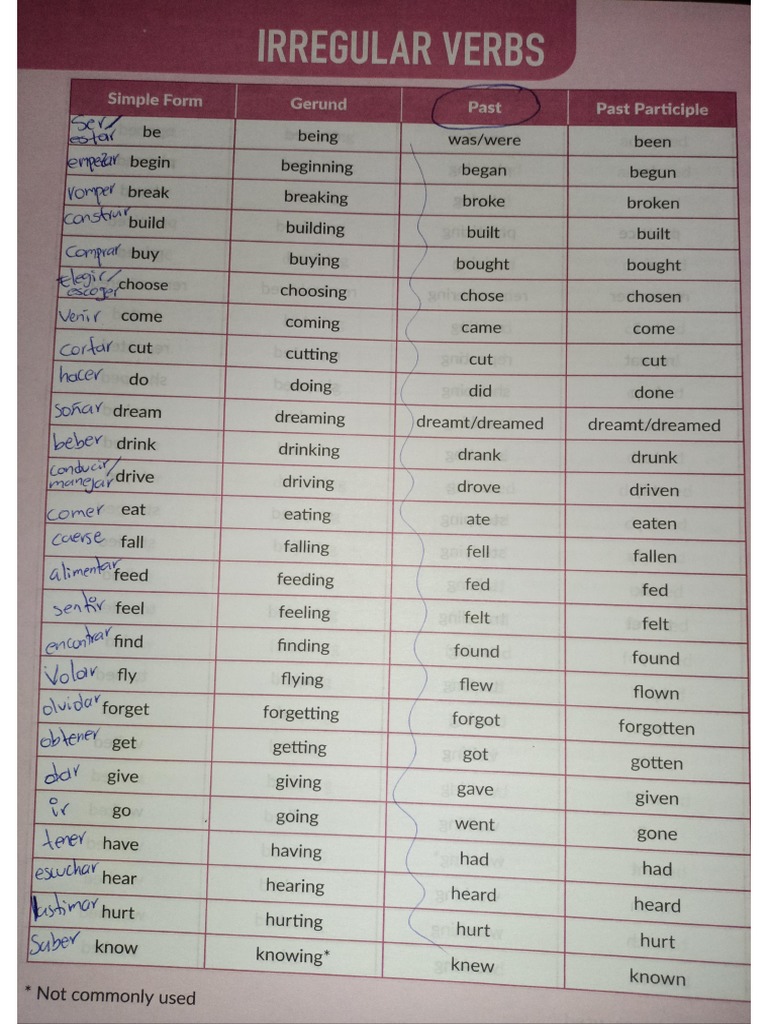 IRREGULAR VERBS
Simple Form Gerund Past Past Participle
Ser/ estar be being was/were been
empezar begin beginning began begun
romper break breaking broke broken
construir build building built built
Comprar buy buying bought bought
Elegir/ escoger choose choosing chose chosen
Venir come coming came come
cortar cut cutting cut cut
hacer do doing did done
soñar dream dreaming dreamt/dreamed dreamt/dreamed
beber drink drinking drank drunk
conducir/ manejar drive driving drove driven
comer eat eating ate eaten
caerse fall falling fell fallen
alimentar feed feeding fed fed
sentir feel feeling felt felt
encontrar find finding found found
Volar fly flying flew flown
olvidar forget forgetting forgot forgotten
obtener get getting got gotten
dar give giving gave given
ir go going went gone
tener have having had had
escuchar hear hearing heard heard
lastimar hurt hurting hurt hurt
Saber know knowing* knew known
* Not commonly used